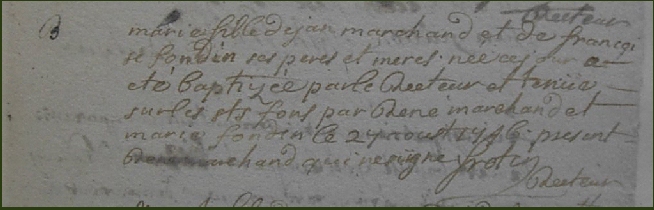 Recteur
B marie fille de jan marchand et de françoi
se fondin ses peres et meres nee ce jour a
eté baptisée par le Recteur et tenüe
sur les sts fons par Rene marchand et
marie fondin le 24 aoust 1746 present
Rene marchand qui ne signe frotin
Recteur